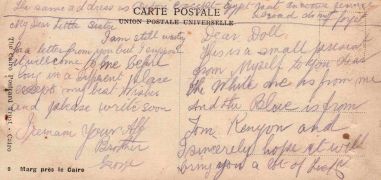 CARTE POSTALE
UNION POSTALE UNIVERSELLE
The same address
My Dear little Sister
I am still waiting
for a letter from you but I expect
it will come to me before
long in a different place
accept my best wishes
and please write soon
I remain Your Aff
Brother
George
Dear Doll.
This is a small present
from Myself to you dear
the White one is from me
And the Blue is from
Tom Kenyon and
I sincerely hope it will
bring you a lot of luck
The Cairo Postcard Trust - Cairo
9 Marg près le Caire